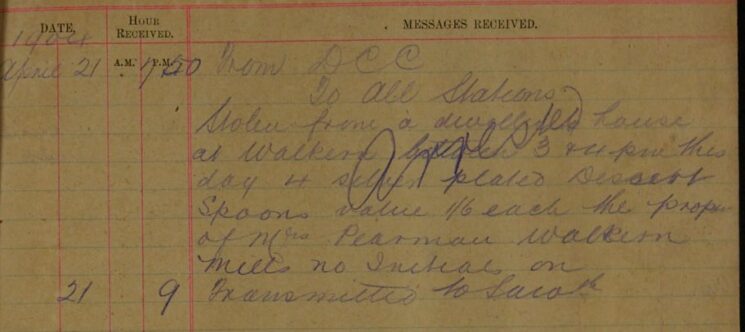 DATE, HOUR RECEIVED. MESSAGES RECEIVED.
1904
April 21 A.M. P.M. 7 50 From DCC
To All Stations
Stolen from a dwelling house
at Walkern between 3 & 4 pm this
day 4 silver plated Dessert
Spoons value 1/6 each the prope
of Mrs Pearman Walkern
Mills no Initials on
21 9 Transmitted to